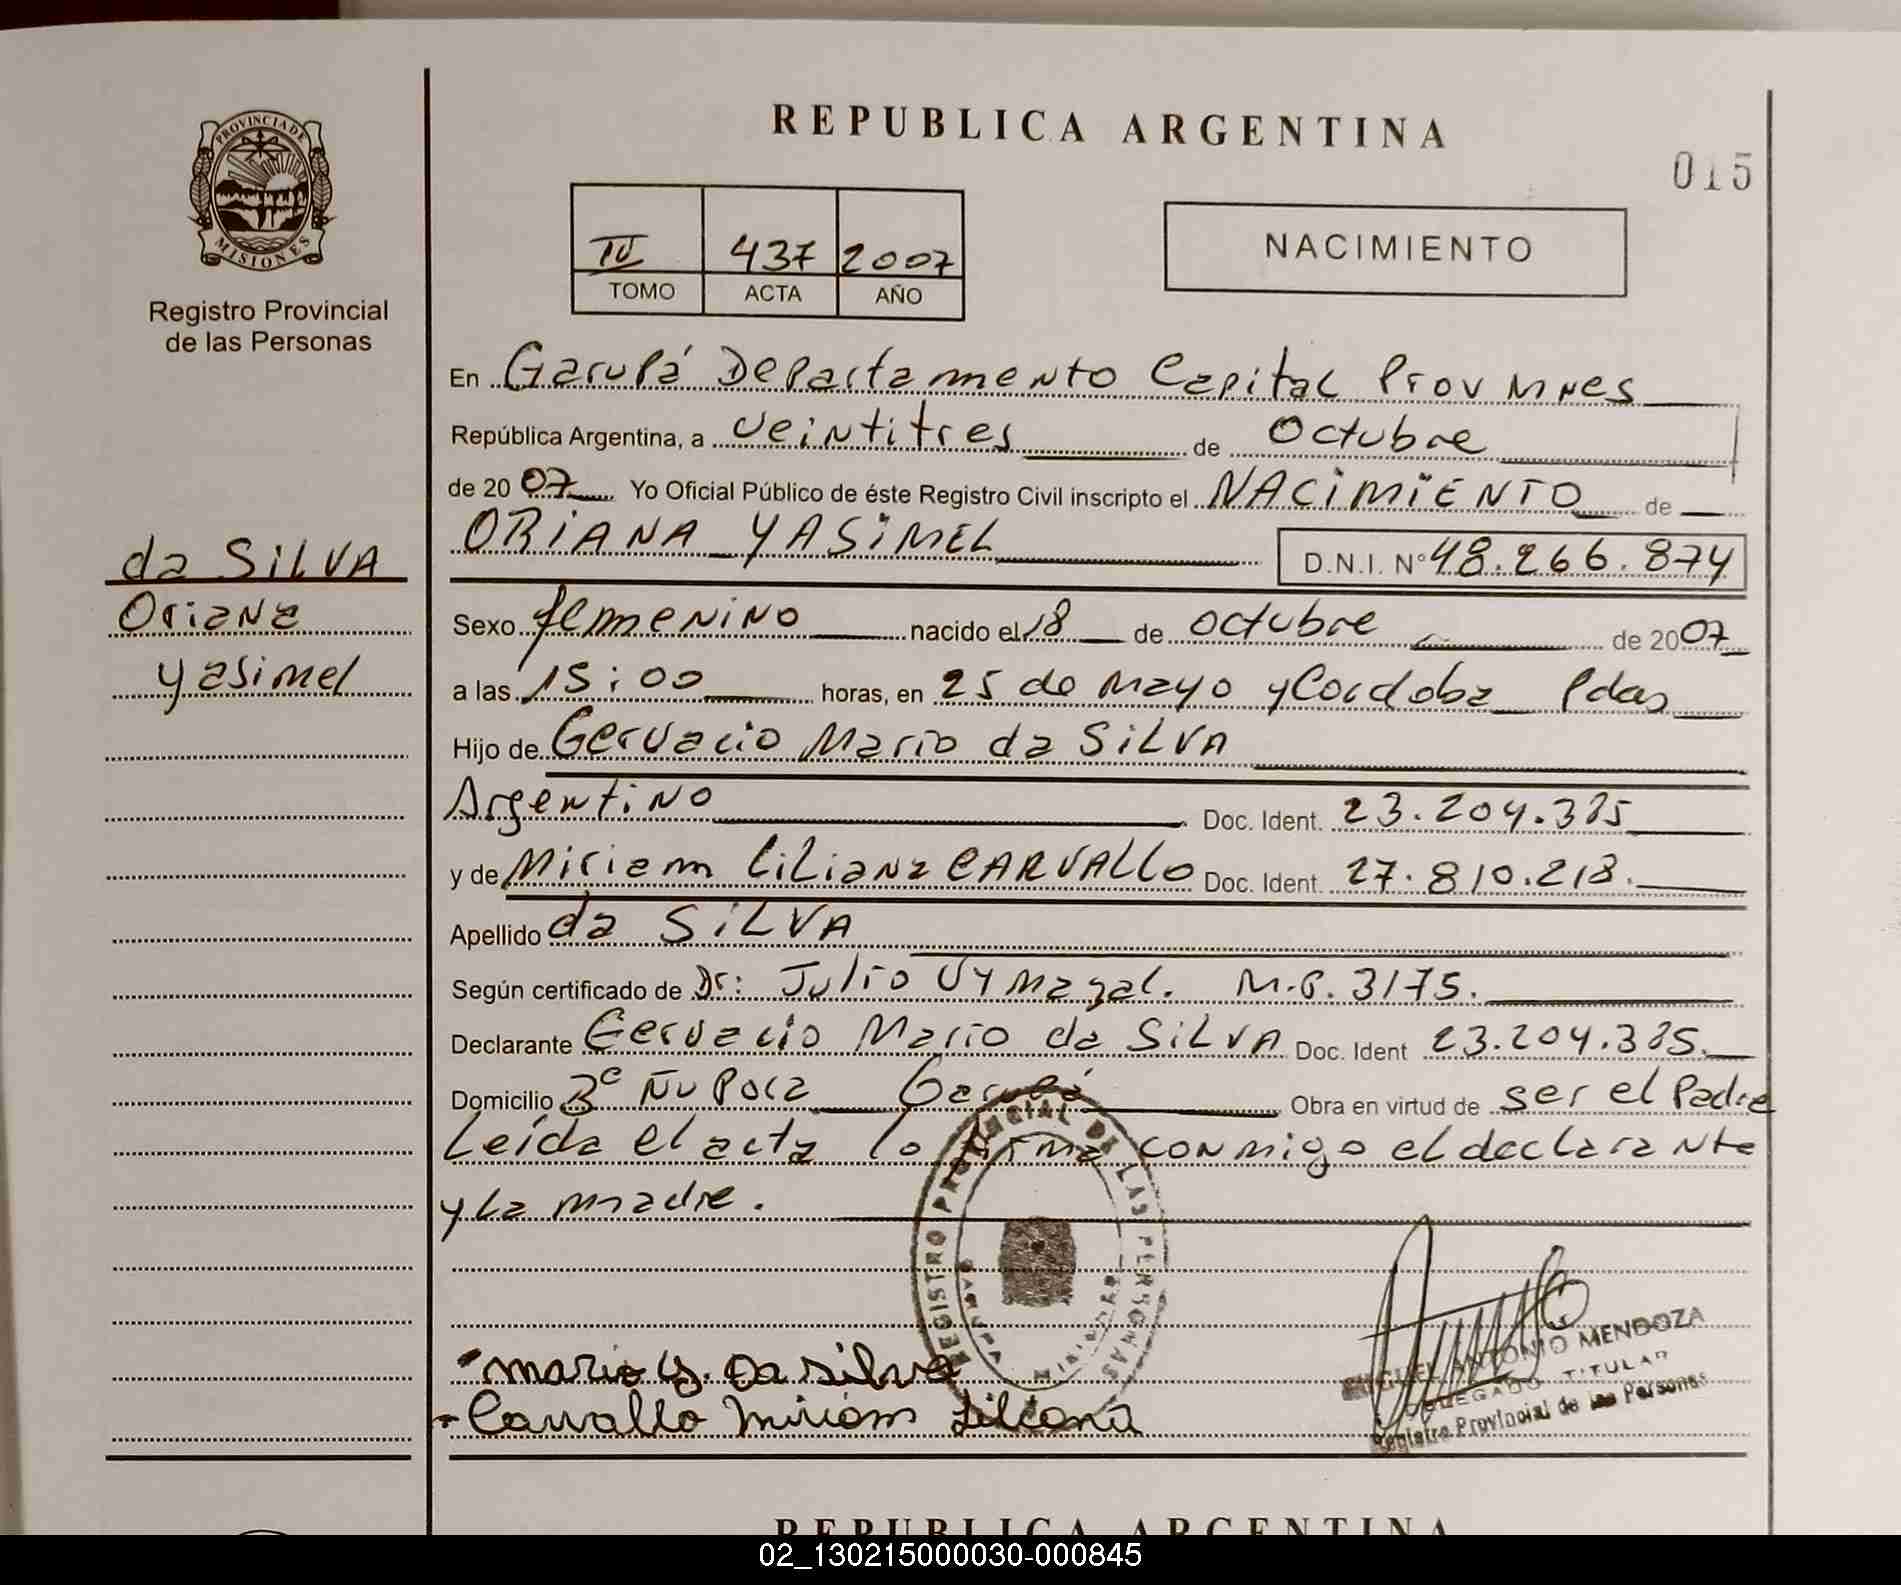 REPUBLICA ARGENTINA
015
PROVINCIA DE
MISIONES
Registro Provincial
de las Personas
IV 437 2007
TOMO ACTA AÑO
NACIMIENTO
En Garupá Departamento Capital Prov Mnes
República Argentina, a veintitres de Octubre
de 2007 Yo Oficial Público de éste Registro Civil inscripto el NACIMIENTO de
ORIANA YASIMEL D.N.I. Nº 48.266.874
da SILVA
Oriana
Yasimel
Sexo femenino nacido el 18 de octubre de 2007
a las 15:00 horas, en 25 de Mayo y Cordoba Pdas
Hijo de Gervacio Mario da SILVA
Argentino Doc. Ident. 23.204.385
y de Miriam Liliana CARVALLO Doc. Ident. 27.810.218.
Apellido da SILVA
Según certificado de Dr: Julio M.P. 3175.
Declarante Gervacio Mario da SILVA Doc. Ident 23.204.385.
Domicilio Bº Ñu Pora Garupá Obra en virtud de ser el Padre
Leída el acta lo firma conmigo el declarante
y la madre.
REGISTRO PROVINCIAL DE LAS PERSONAS
GARUPA MISIONES
Mario G. Da Silva
Carvallo Miriam Liliana
MIGUEL ANTONIO MENDOZA
DELEGADO TITULAR
Registro Provincial de las Personas
REPUBLICA ARGENTINA
02_130215000030-000845